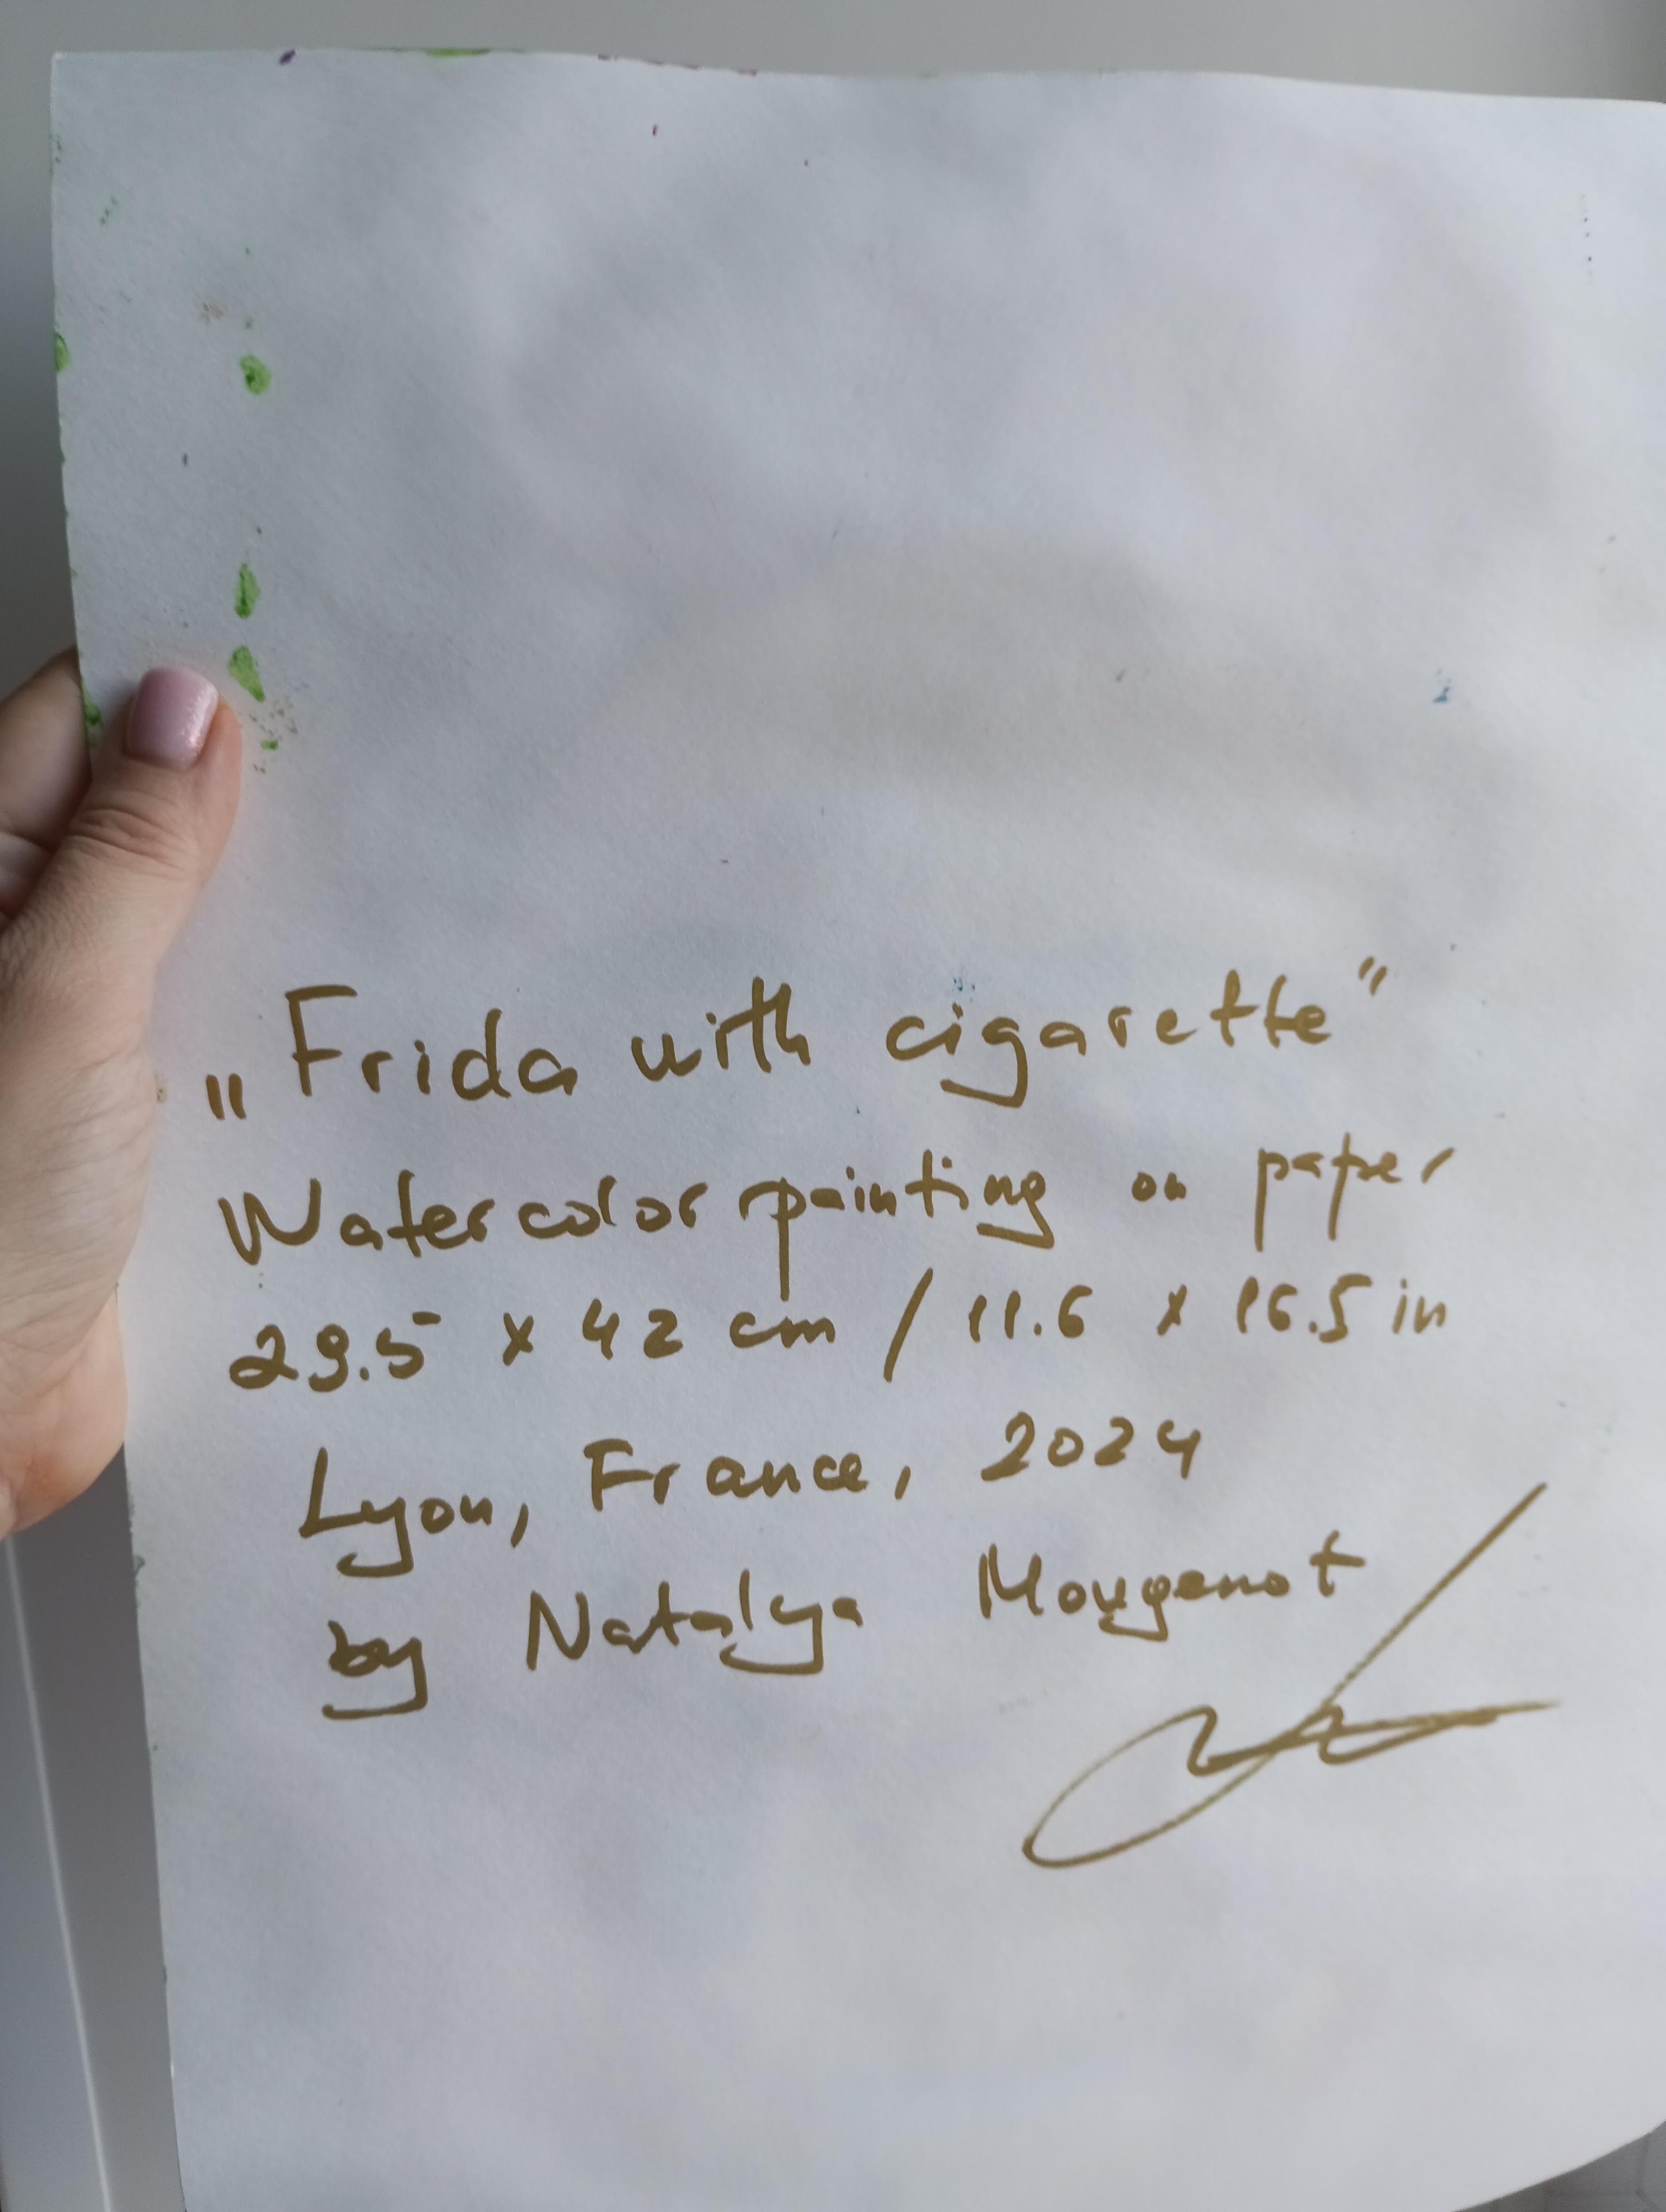 „Frida with cigarette"
Watercolor painting on paper
29.5 x 42 cm / 11.6 x 16.5 in
Lyon, France, 2024
by Natalya Mougenot